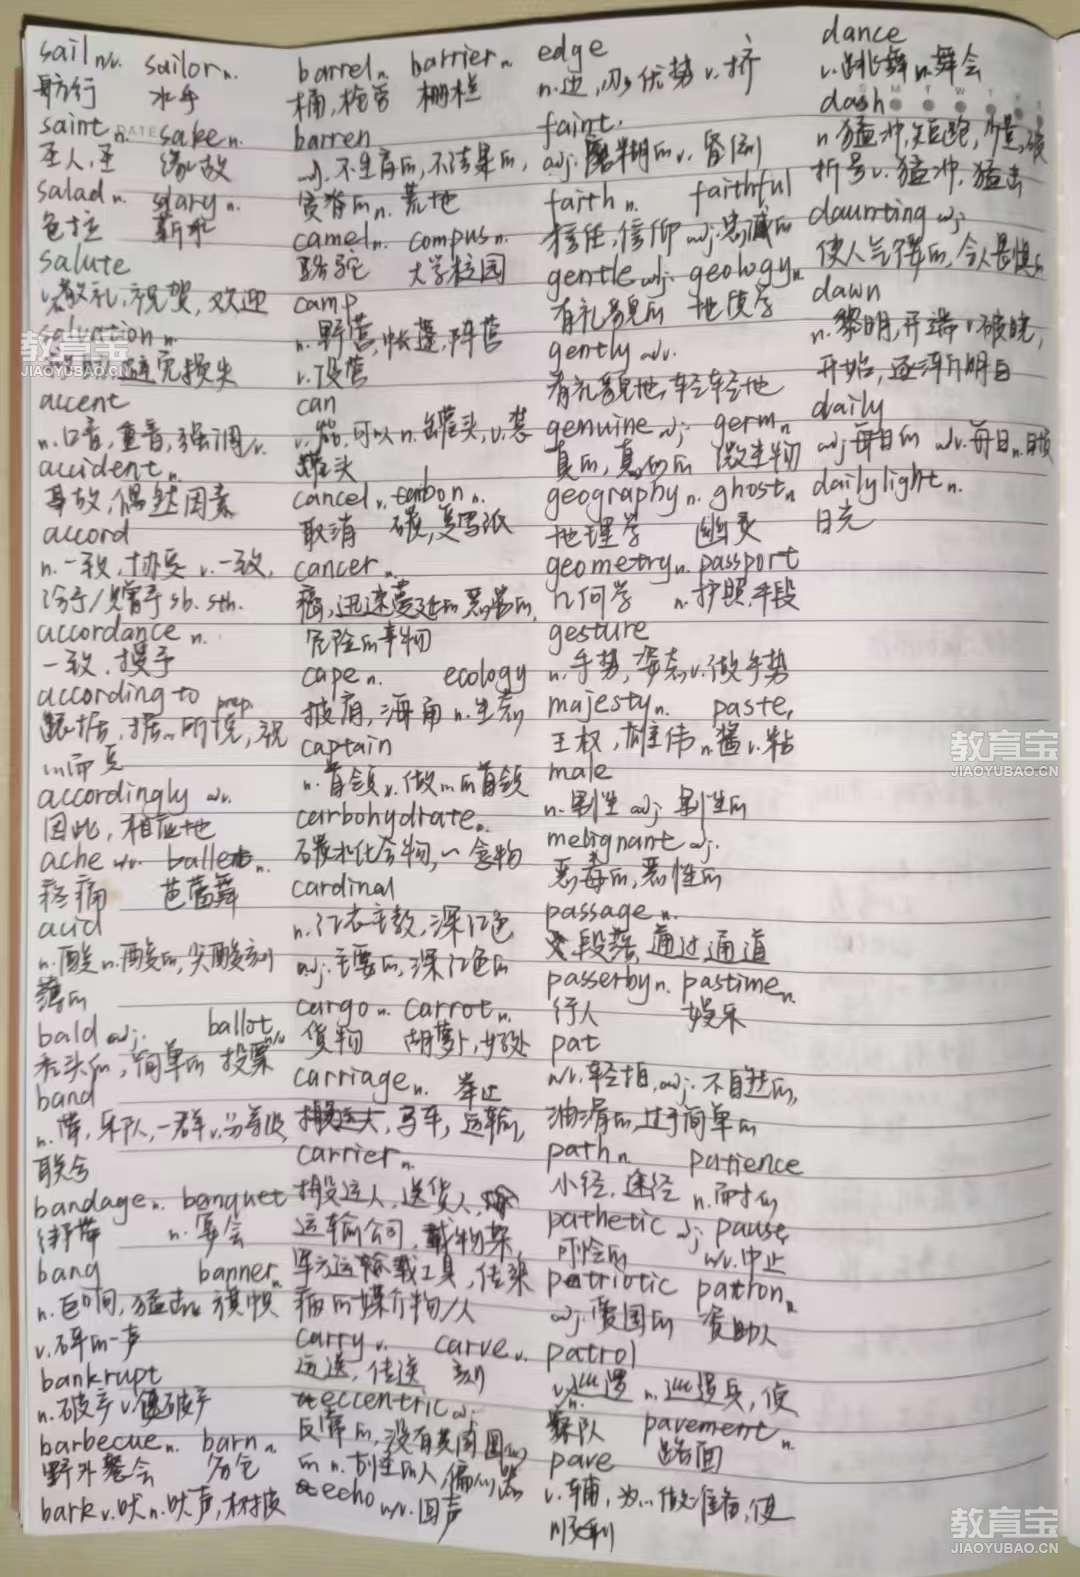 sail n/v. sailor n.
航行 水手
saint n. sake n.
圣人,圣 缘故
salad n. salary n.
色拉 薪水
salute
v.敬礼,祝贺,欢迎
salvation n.
避免损失
accent
n.口音,重音,强调v.
accident n.
事故,偶然因素
accord
n.一致,协议 v.一致,
给予/赠予sb. sth.
accordance n.
一致,授予
according to prep.
据,据…所说,视
…而定
accordingly adv.
因此,相应地
ache n/v. ballet n.
疼痛 芭蕾舞
acid
n.酸 n.酸的,尖酸刻
薄的
bald adj. ballot n/v
秃头的,简单的 投票
band
n.带,乐队,一群v.分等级
联合
bandage n. banquet
绷带 n.宴会
bang banner n.
n.巨响,猛击 旗帜
v.砰的一声
bankrupt
n.破产 v.使破产
barbecue n. barn n.
野外聚会 谷仓
bark v.吠n.吠声,树皮
barrel n. barrier n.
桶,枪管 栅栏
barren
adj.不生育的,不结果的,
贫瘠的n.荒地
camel n. compus n.
骆驼 大学校园
camp
n.野营,帐蓬,阵营
v.设营
can
v.能,可以n.罐头,v.装
罐头
cancel n. carbon n.
取消 碳,复写纸
cancer n.
癌,迅速蔓延的恶的,
危险的事物
cape n. ecology
披肩,海角 n.生态
captain
n.首领v.做…的首领
carbohydrate n.
碳水化合物,…食物
cardinal
n.红衣主教,深红色
adj.主要的,深红色的
cargo n. carrot n.
货物 胡萝卜,好处
carriage n. 举止
搬运,马车,运输
carrier n.
搬运人,送货人,
运输公司,载物架,
军方运输载工具,传染
病的媒介物/人
carry v. carve v.
运送,传送 刻
eccentric adj.
反常的,没有共同圆心
的n.古怪的人,偏心器
echo n/v.回声
edge
n.边,刀,优势 v.挤
faint.
adj.模糊的v.昏倒
faith n. faithful
信任,信仰 adj.忠诚的
gentle adj. geology n.
有礼貌的 地质学
gently adv.
有礼貌地,轻轻地
genuine adj. germ n.
真的,真正的 微生物
geography n. ghost n.
地理学 幽灵
geometry n. passport
几何学 n.护照,手段
gesture
n.手势,姿态v.做手势
majesty n. paste,
王权,雄伟 n.酱v.粘
male
n.男性 adj.男性的
melignant adj.
恶毒的,恶性的
passage n.
段落,通过,通道
passerby n. pastime n.
行人 娱乐
pat
n/v.轻拍,adj.不自然的,
油滑的,过于简单的
path n. patience
小径,途径 n.耐心
pathetic adj. pause,
可怜的 n/v.中止
patriotic patron n.
adj.爱国的 资助人
patrol
v.巡逻 n.巡逻兵,侦
察队 pavement n.
pave 路面
v.铺,为…做准备,使
顺利
dance
v.跳舞n.舞会
dash
n.猛冲,短跑,少量,破
折号v.猛冲,猛击
daunting adj.
使人气馁的,令人畏惧的
dawn
n.黎明,开端v.破晓,
开始,逐渐明白
daily
adj.每日的 adv.每日n.日报
dailylight n.
日光
教育宝
JIAOYUBAO.CN
教育宝
JIAOYUBAO.CN
教育宝
JIAOYUBAO.CN